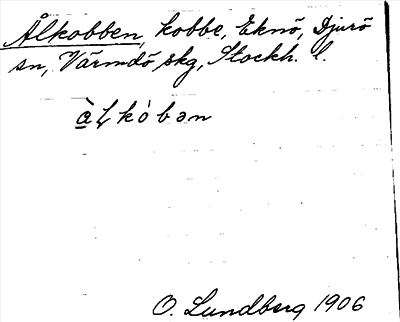 Ålkobben, kobbe, Eknö, Djurö
sn, Värmdö skg, Stockh. l.
å̀ɭkòbən
O. Lundberg 1906